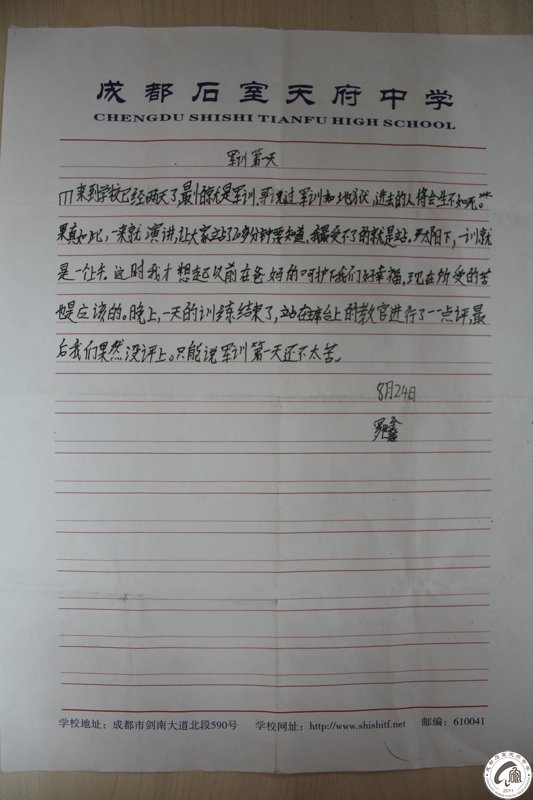 成都石室天府中学
CHENGDU SHISHI TIANFU HIGH SCHOOL
军训第一天
来到学校已经两天了,最 就是军训,听说过军训如地狱,进去的人将会生不如死。
果真如此,一来就演讲,让大家站了20多分钟要知道,我最受不了的就是站。 太阳下,一训就
是一上午。这时我才想起以前在爸妈的呵护下我们好幸福,现在所受的苦
也是应该的。晚上,一天的训练结束了,站在 台上的教官进行了一一点评,最
后我们果然没评上。只能说军训第一天还不太苦。
8月24日
罗鑫
学校地址:成都市剑南大道北段590号 学校网址:http://www.shishitf.net 邮编:610041
2011